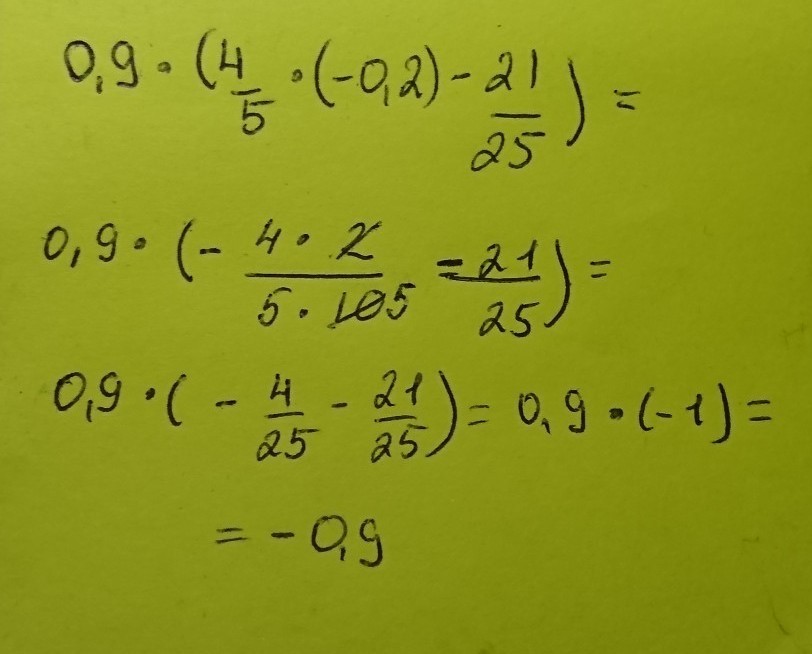 0,9 · (4/5 · (-0,2) - 21/25) =
0,9 · (- 4 · 2/5 · 10 5 - 21/25) =
0,9 · ( - 4/25 - 21/25) = 0,9 · (-1) =
= - 0,9